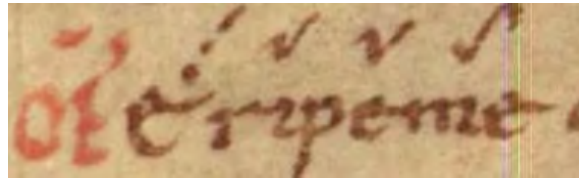 Of Eripe me